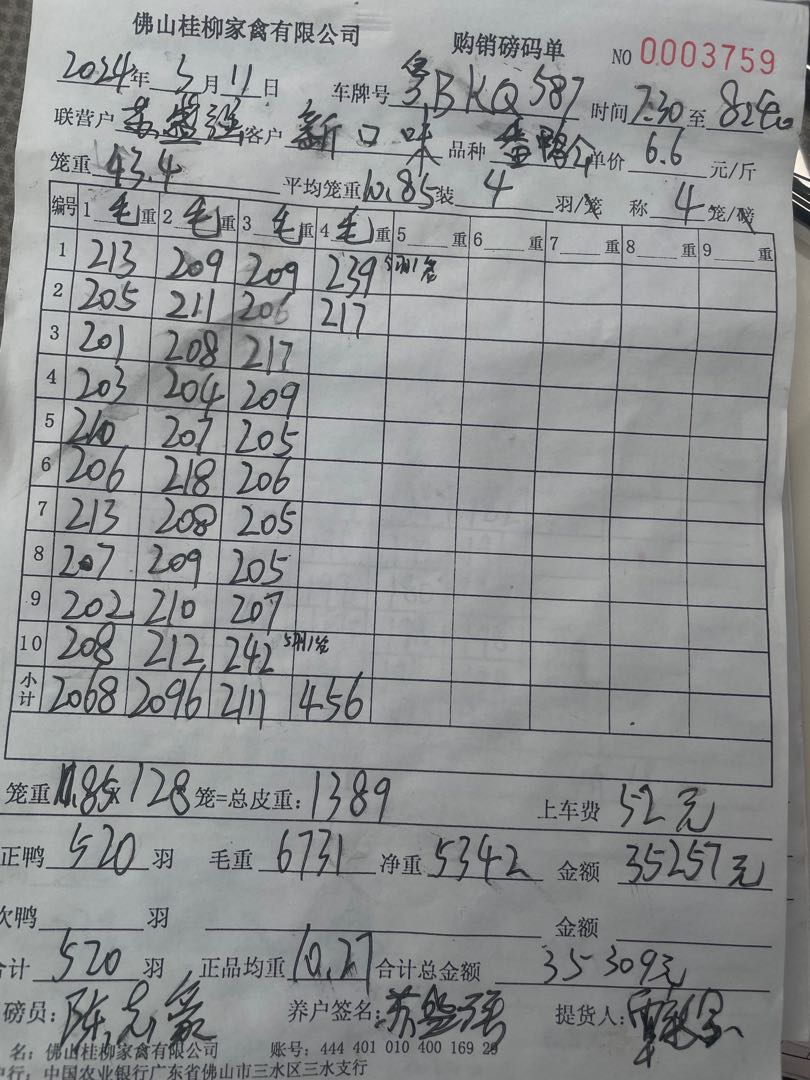 佛山桂柳家禽有限公司 购销磅码单 NO 0003759
2024年3月11日 车牌号 粤BKQ587 时间7:30至
联营户 苏盤强 客户 新口味 品种 单价 6.6 元/斤
笼重 43.4 平均笼重10.85装 4 羽/笼 称 4 笼/磅
编号 1 毛 重 2 毛 重 3 毛 重 4 毛 重 5 重 6 重 7 重 8 重 9 重
1 213 209 209 239 5羽1笼
2 205 211 206 217
3 201 208 217
4 203 204 209
5 210 207 205
6 206 218 206
7 213 208 205
8 207 209 205
9 202 210 207
10 208 212 242 5羽1笼
小计 2068 2096 2111 456
笼重 10.85×128 笼=总皮重：1389 上车费 52元
正鸭 520 羽 毛重 6731 净重 5342 金额 35257元
次鸭 羽 金额
合计 520 羽 正品均重 10.27 合计总金额 35309元
磅员：陈志豪 养户签名：苏盤强 提货人：
名：佛山桂柳家禽有限公司 账号：444 401 010 400 169 29
户行：中国农业银行广东省佛山市三水区三水支行